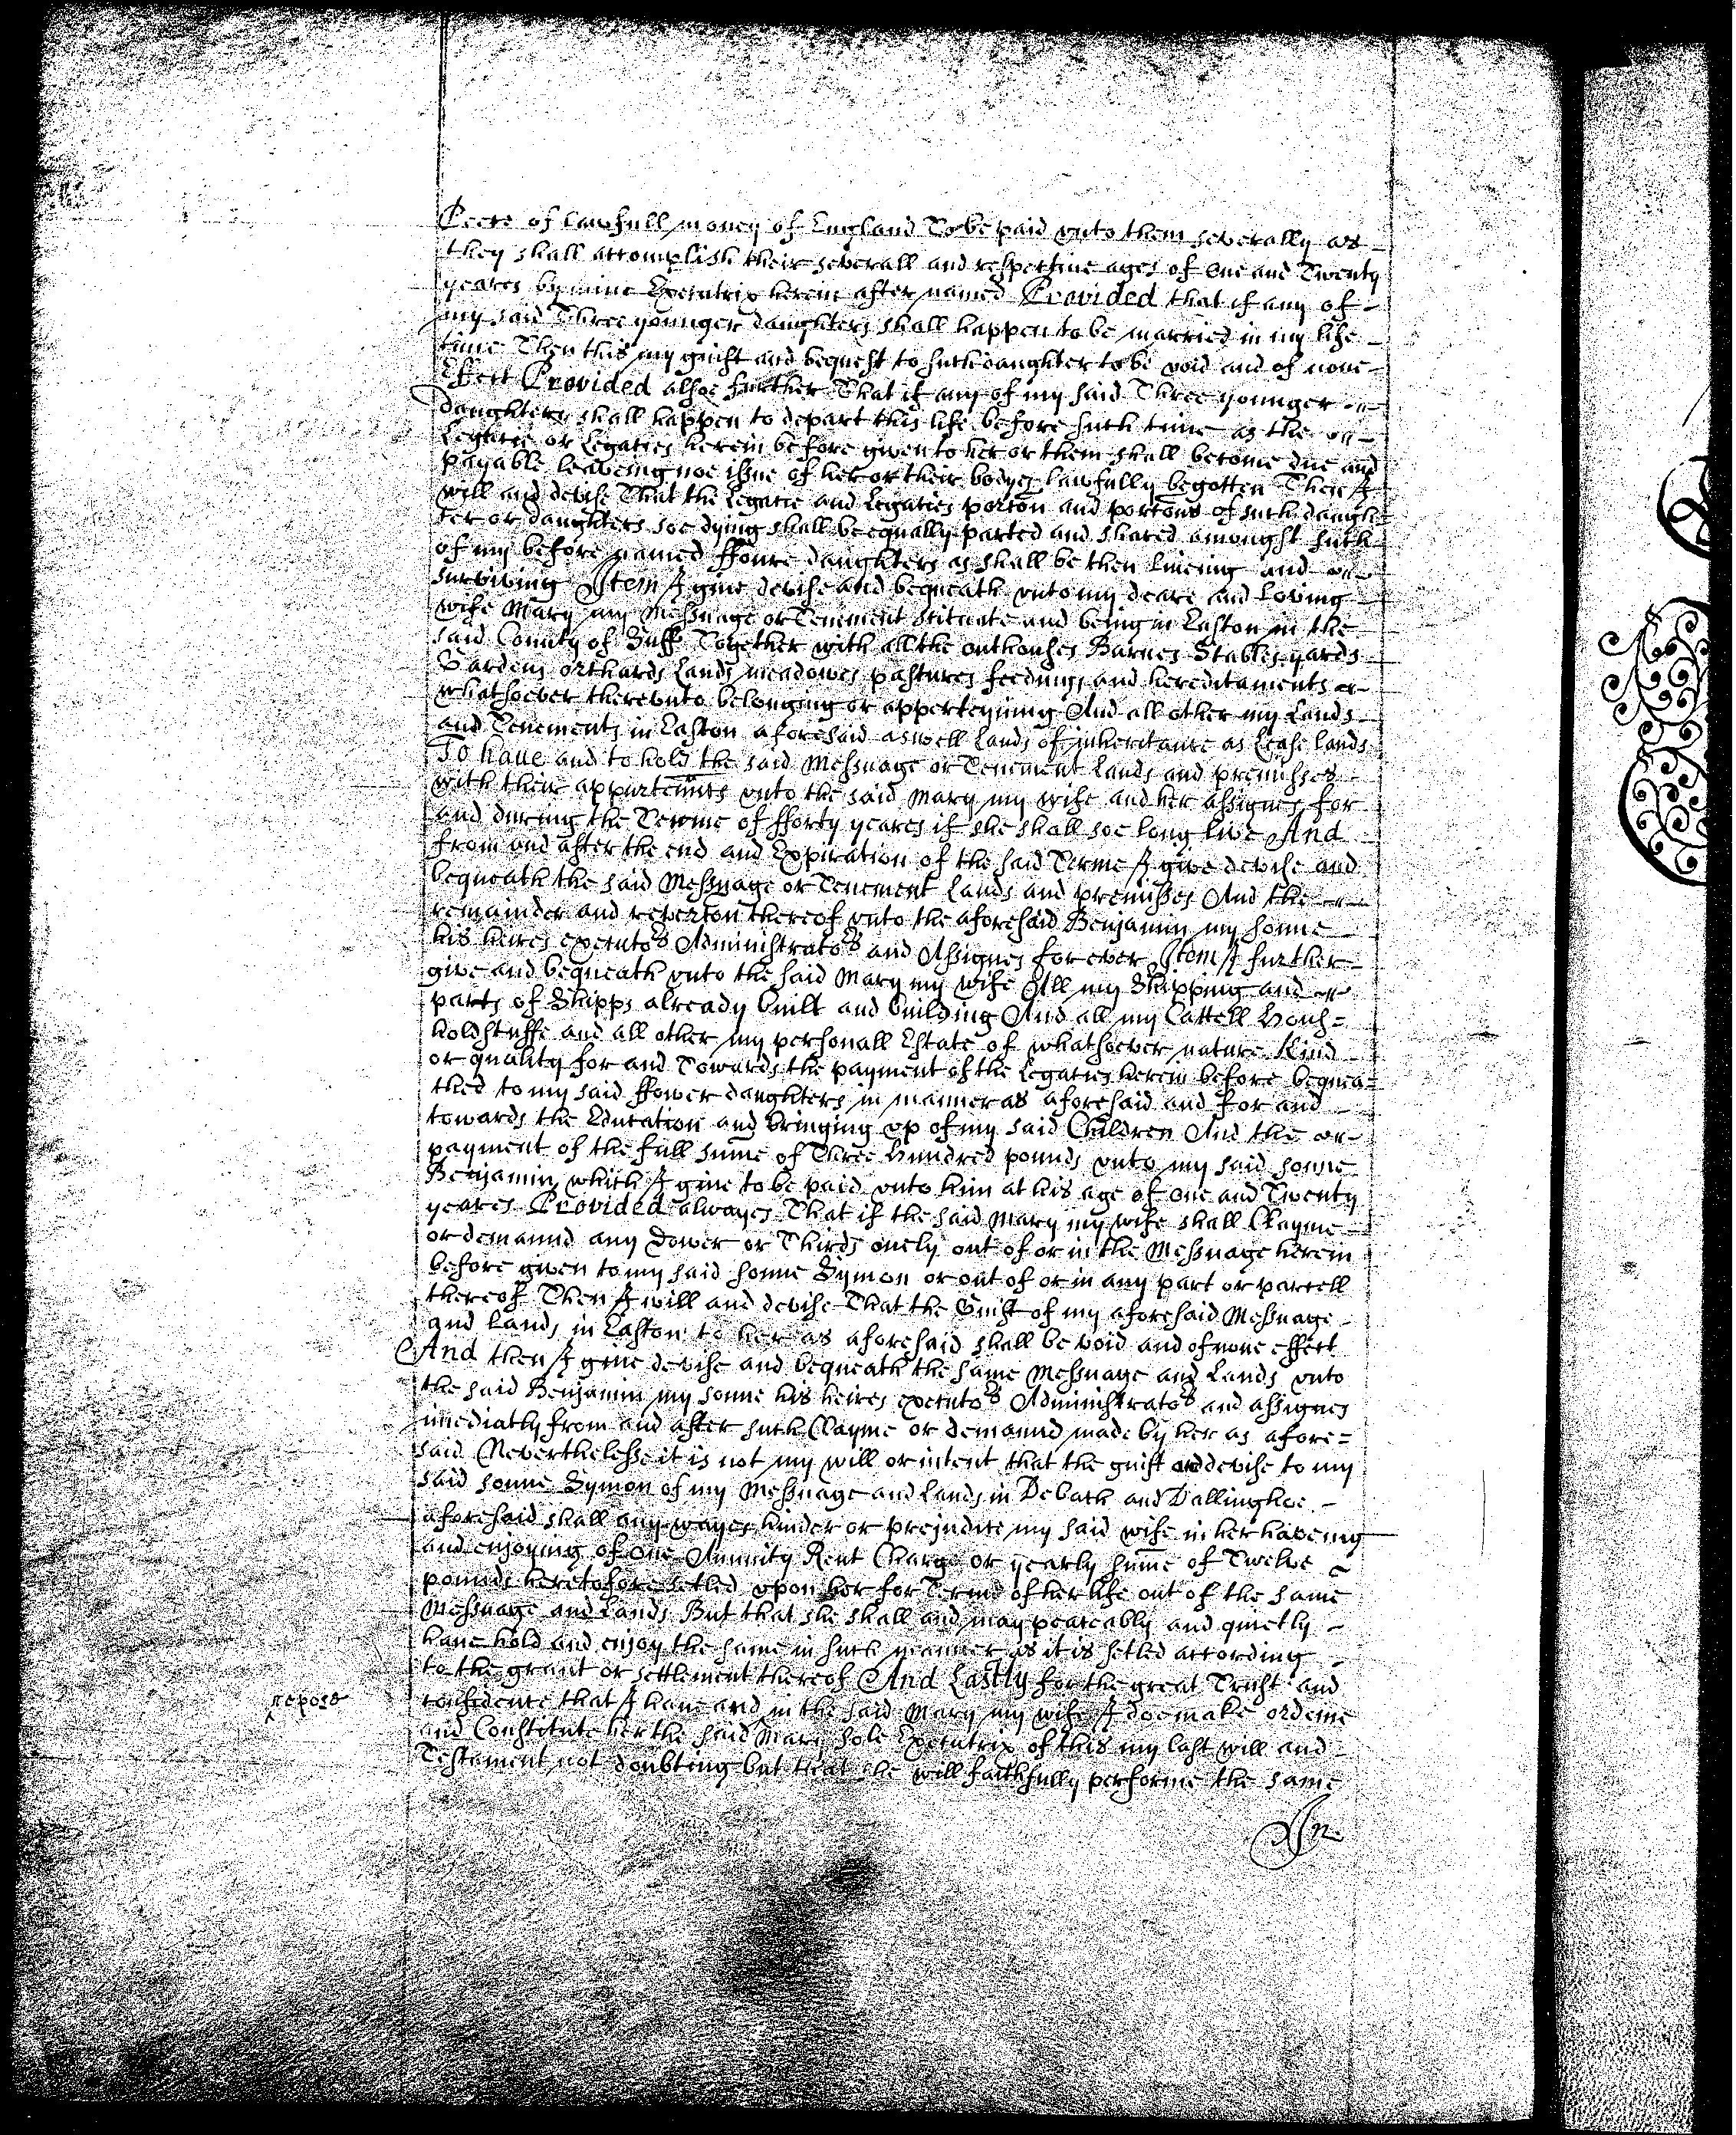 Peece of lawfull money of England To be paid vnto them severally as
they shall accomplish their severall and respective ages of one and Twenty
yeares by mine Executrix herein after named Provided that if any of
my said Three younger daughters shall happen to be married in my life
time Then this my guift and bequest to such daughter to be void and of none
Effect Provided alsoe further That if any of my said Three younger
daughters shall happen to depart this life before such time as the
Legacie or Legacies herein before given to her or them shall become due and
payable leaveing noe issue of her or their bodyes lawfully begotten Then I
will and devise That the Legacie and Legacies porcon and porcons of such daugh
ter or daughters soe dying shall be equally parted and shared amongst such
of my before named ffoure daughters as shall be then liveing and
surviving Item I give devise and bequeath vnto my deare and loving
wife Mary my Messuage or Tenement scituate and being in Easton in the
said County of Suff Together with all the outhouses Barnes Stables yards
Gardens orchards Lands meadowes pastures feedings and hereditaments
whatsoever therevnto belonging or apperteyning And all other my Lands
and Tenements in Easton aforesaid aswell Lands of inheritance as Lease lands
To haue and to hold the said Messuage or Tenement Lands and premisses
with their appurtennces vnto the said Mary my wife and her assignes for
and during the Terme of fforty yeares if she shall soe long live And
from and after the end and Expiration of the said Terme I give devise and
bequeath the said Messuage or Tenement Lands and premisses And the
remainder and revercon thereof vnto the aforesaid Benjamin my sonne
his heires executors Administrators and Assignes for ever Item I further
give and bequeath vnto the said Mary my wife All my Shipping and
parts of Shipps already built and building And all my Cattell Hous=
holdstuffe and all other my personall Estate of whatsoever nature Kind
or quality for and Towards the payment of the Legacies herein before bequea=
thed to my said ffower daughters in manner as aforesaid and for and
towards the Education and bringing vp of my said Children And the
payment of the full sume of Three Hundred pounds vnto my said sonne
Benjamin which I give to be paid vnto him at his age of one and Twenty
yeares Provided alwayes That if the said Mary my wife shall Clayme
or demaund any Dower or Thirds onely out of or in the Messuage herein
before given to my said sonne Symon or out of or in any part or parcell
thereof Then I will and devise That the Guift of my aforesaid Messuage
and Lands in Easton to her as aforesaid shall be void and of none effect
And then I give devise and bequeath the same Messuage and Lands vnto
the said Benjamin my sonne his heires executors Administrators and assignes
imediatly from and after such Clayme or demaund made by her as afore=
said Neverthelesse it is not my will or intent that the guift and devise to my
said sonne Symon of my Messuage and Lands in Debach and Dallinghoe
aforesaid shall any wayes hinder or prejudice my said wife in her haveing
and enjoying of one Annuity Rent Charge or yearly sume of Twelve
pounds heretofore setled vpon her for Terme of her life out of the same
Messuage and Lands But that she shall and may peaceably and quietly
have hold and enjoy the same in such manner as it is setled according
to the grant or settlement thereof And Lastly for the great Trust and
repose
confidence that I have and in the said Mary my wife I doe make ordeine
and Constitute her the said Mary sole Executrix of this my last will and
Testament not doubting but that she will faithfully performe the same
In